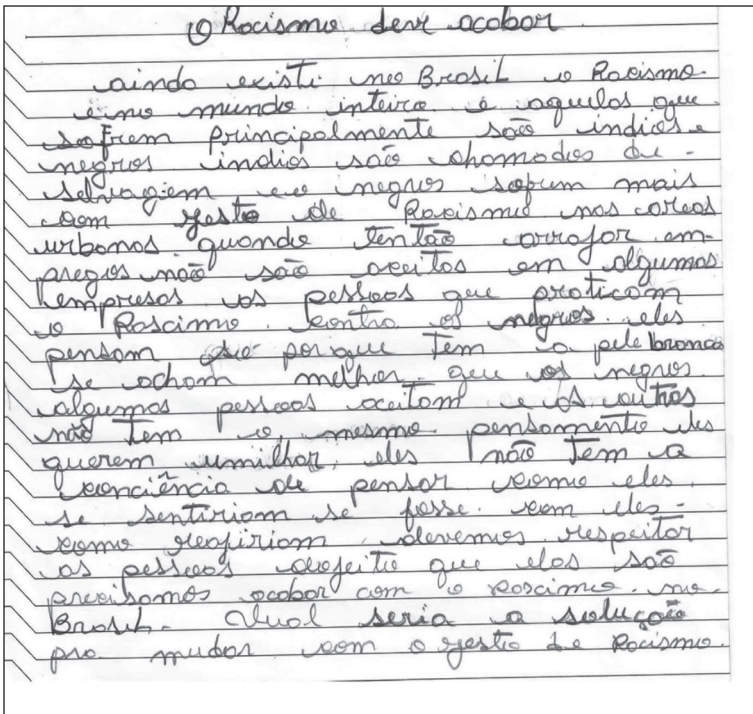 O Racismo deve acabar
ainda existi no Brasil o Racismo
e no mundo inteiro e aquelas que
sofrem principalmente são indios e
negros indios são chamados de
selvagiem e o negros sofrem mais
com gesto de Racismo nas coreas
urbanas quando tentão arrajar em-
pregos não são aceitos em algumas
empresas as pessoas que praticam
o Rascimo contra os negros eles
pensam que porque tem a pele branca
se acham melhor que os negros
algumas pessoas aceitam e os outros
não tem o mesmo pensamento eles
querem umilhar, eles não tem a
conciência de pensar como eles
se sentiriam se fosse com eles-
como reajiriam devemos respeitar
as pessoas dojeito que elas são
precisamos acabar com o rascimo no
Brasil. Qual seria a solução
pra mudar com o gesto de Racismo.